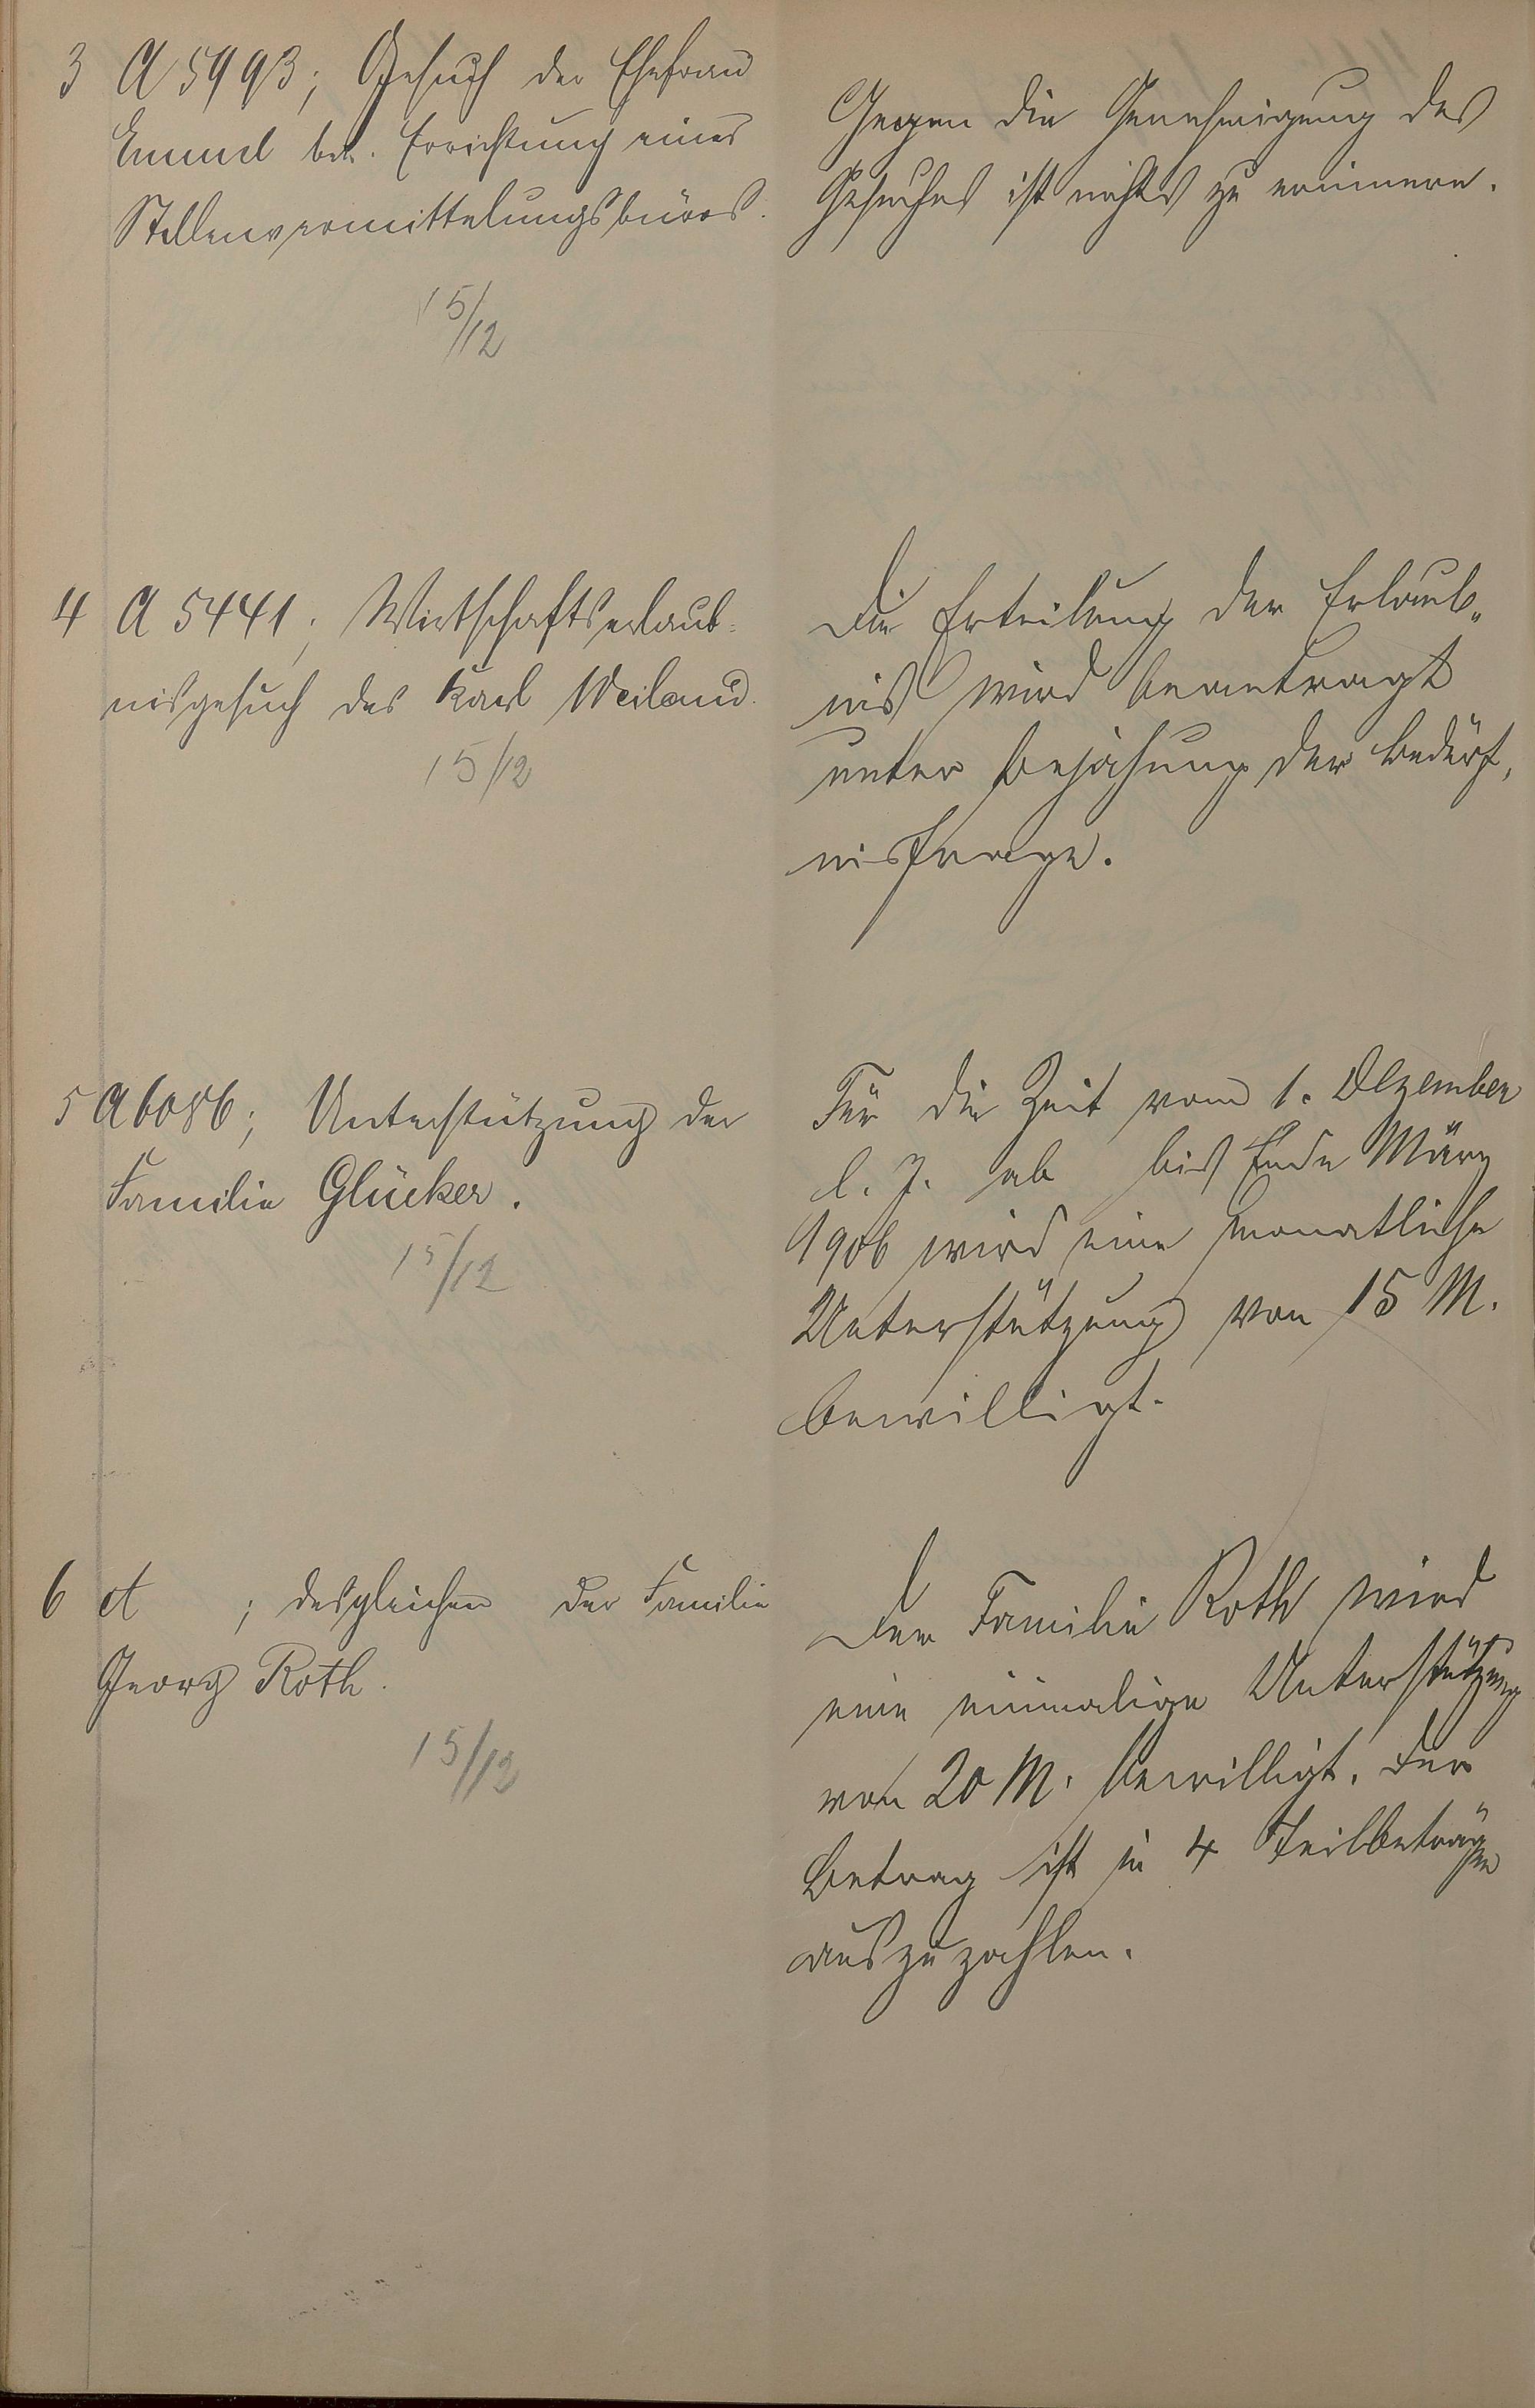 3 A 5993; Gesuch der Ehefrau
Emmel bet. Errichtung eines
Stellenvermittelungsbüros.
15/12
Gegen die Genehmigung des
Gesuches ist nichts zu erinnern.
4 A 5441; Wirtschaftserlaub-
nisgesuch des Karl Weiland.
15/12
Die Erteilung der Erlaub„
nis wird beantragt
unter Bejahung der Bedürf„
nisfrage.
5 A 6086; Unterstützung der
Familie Glücker.
15/12
Für die Zeit vom 1. Dezember
l. J. ab bis Ende März
1906 wird eine monatliche
Unterstützung von 15 M.
bewilligt.
6 A ; desgleichen der Familie
Georg Roth.
15/12
Der Familie Roth wird
eine einmalige Unterstützung
von 20 M. bewilligt. Der
Betrag ist in 4 Teilbeträgen
auszuzahlen.